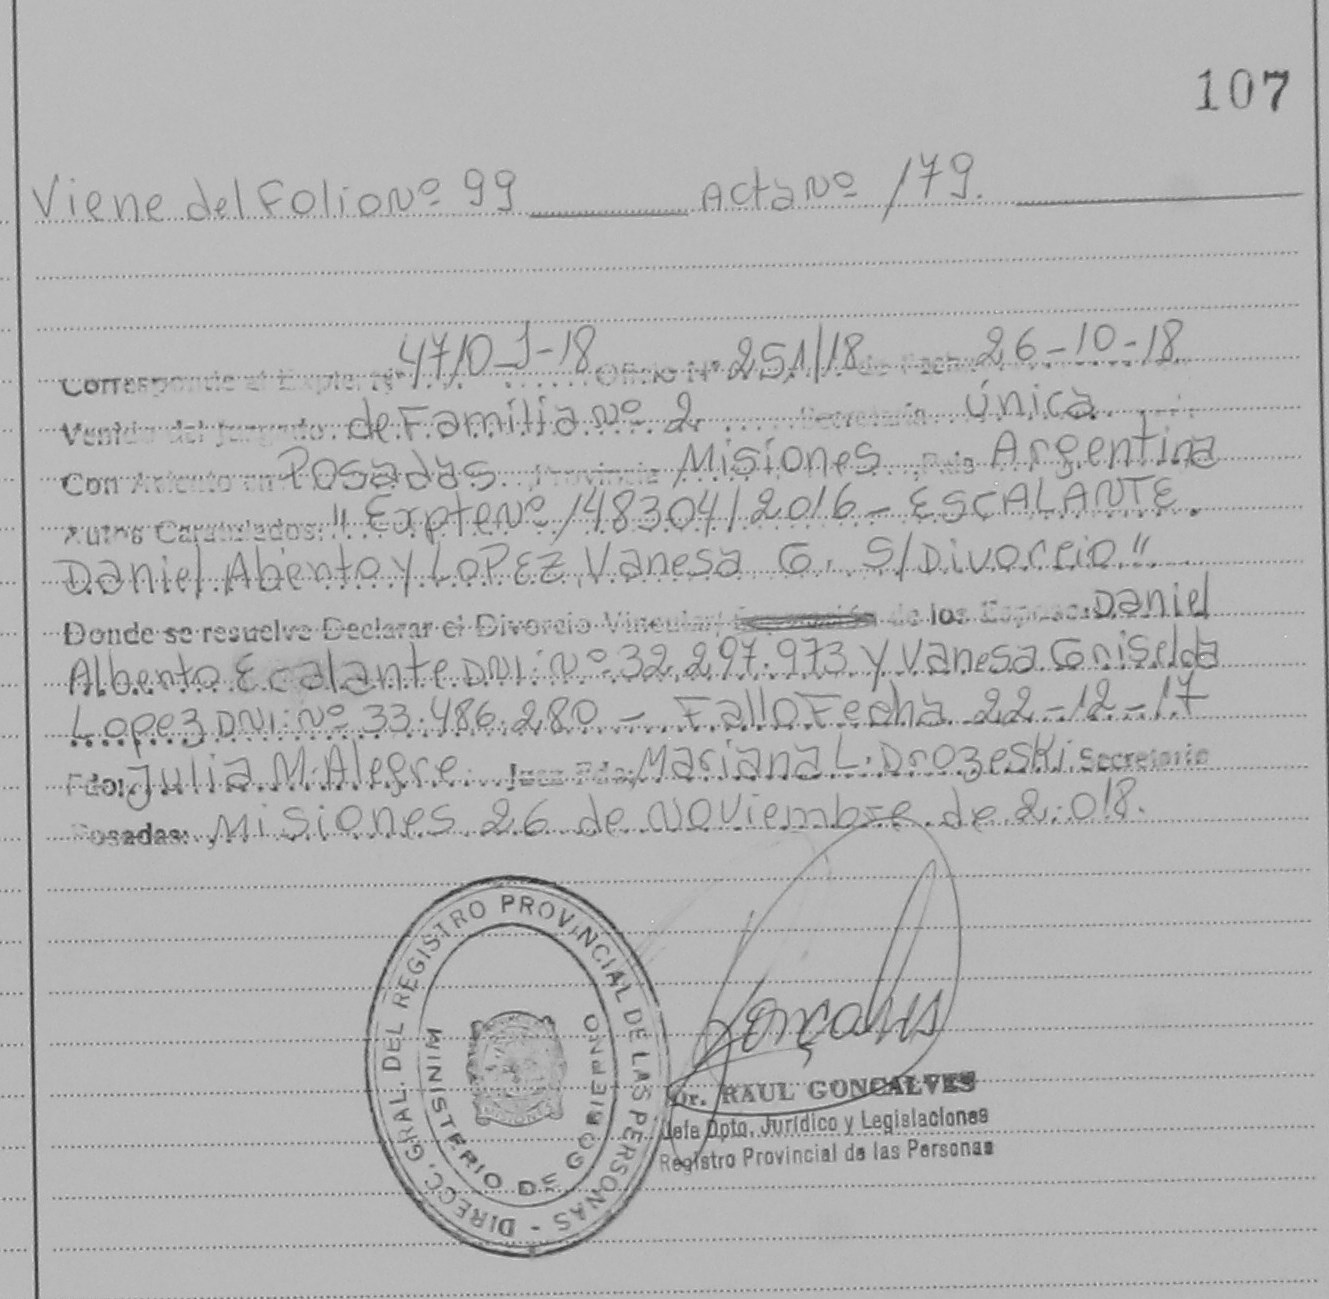 107
Viene del Folio Nº 99 ______ Acta Nº 179. ______
Corresponde al Expte. Nº 4710-J-18 Oficio Nº 251/18 de Fecha 26-10-18
Venido del Juzgado de Familia Nº 2. Secretaría única
Con Asiento en Posadas Provincia Misiones País Argentina
Autos Caratulados: "Expte Nº 148304/2016 - ESCALANTE.
Daniel Abento y LOPEZ, Vanesa G. S/Divorcio"
Donde se resuelve Declarar el Divorcio Vincular/ de los Esposos: Daniel
Albento Ecalante DNI: Nº 32.297.973 y Vanesa Griselda
Lopez DNI: Nº 33.486.280 - Fallo Fecha 22-12-17
Fdo: Julia M. Alegre Juez Fdo: Mariana L. Drozeski Secretario
Posadas: Misiones 26 de Noviembre de 2.018.
DIRECC. GRAL. DEL REGISTRO PROVINCIAL DE LAS PERSONAS -
MINISTERIO DE GOBIERNO
Gonçalves
Dr. RAUL GONCALVES
Jefe Dpto. Jurídico y Legislaciones
Registro Provincial de las Personas